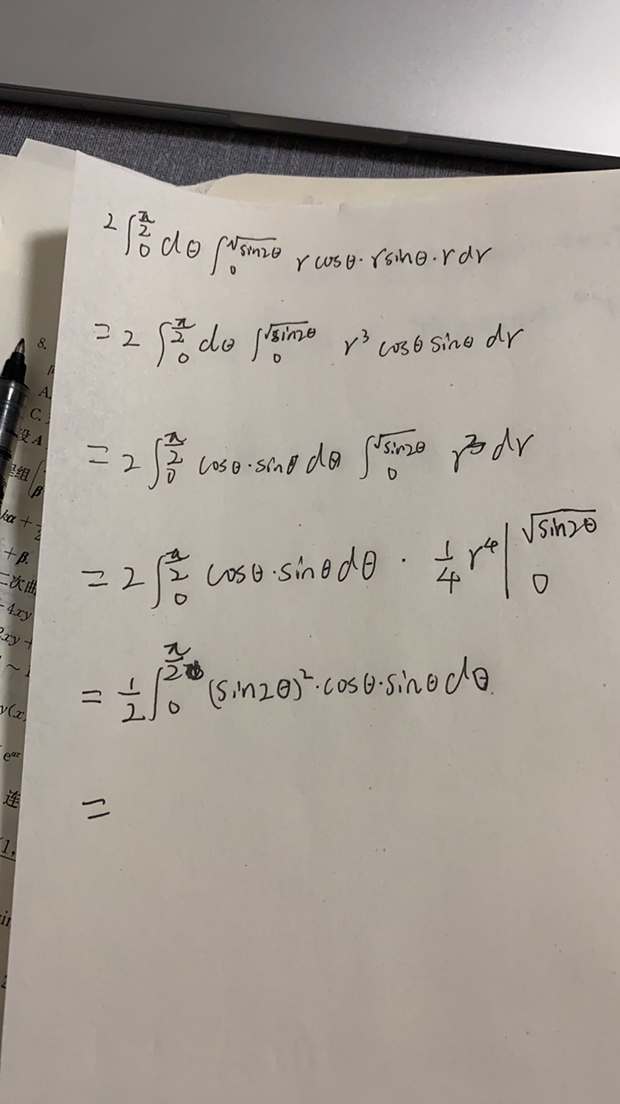 2∫₀^{π/2} dθ ∫₀^{√sin2θ} r cosθ · r sinθ · r dr
= 2 ∫₀^{π/2} dθ ∫₀^{√sin2θ} r³ cosθ sinθ dr
= 2 ∫₀^{π/2} cosθ · sinθ dθ ∫₀^{√sin2θ} r³ dr
= 2 ∫₀^{π/2} cosθ · sinθ dθ · 1/4 r⁴ |₀^{√sin2θ}
= 1/2 ∫₀^{π/2} (sin2θ)² · cosθ · sinθ dθ.
=
8.
A.
C.
设 A
+ β.
二次曲
4xy
2xy +
~
y(x
e^{ax}
连
(1,